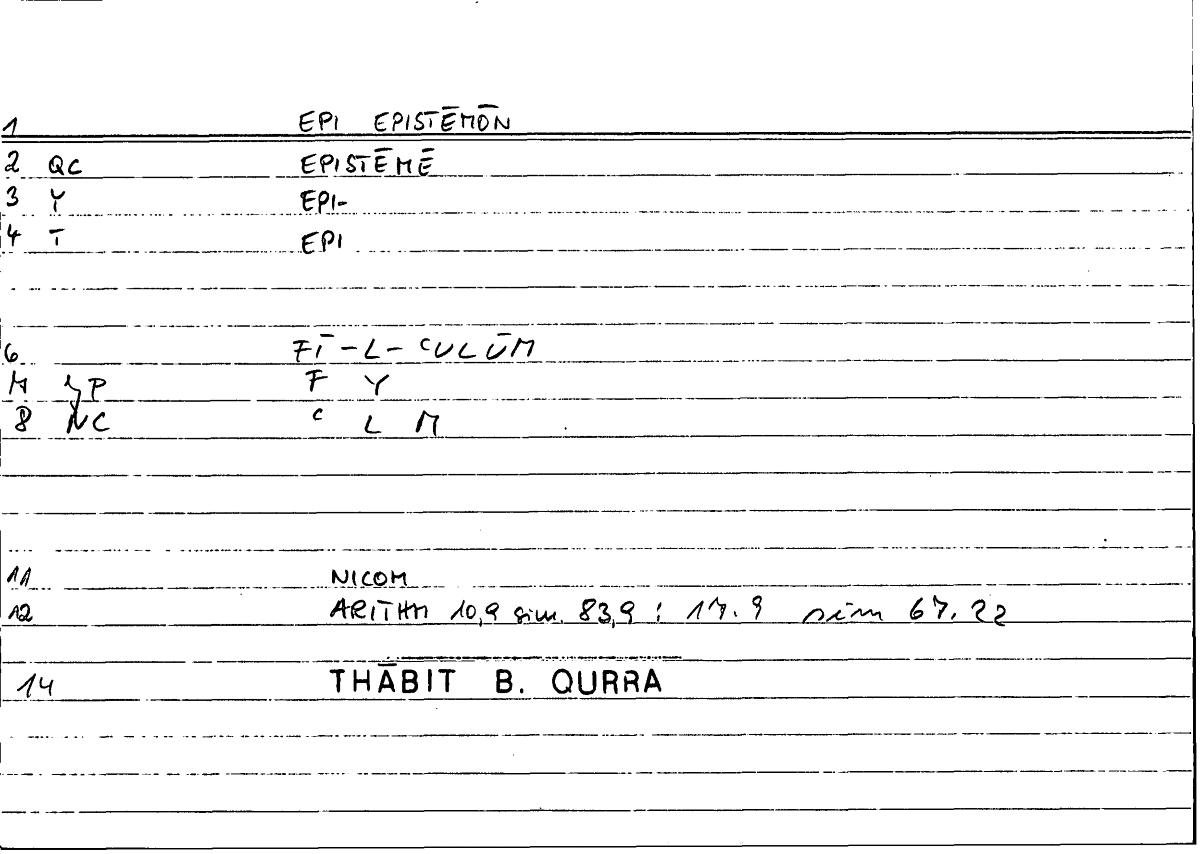 1 EPI EPISTĒMŌN
2 QC EPISTĒMĒ
3 Y EPI-
4 T EPI
6 FĪ-L-ʿULŪM
F Y
8 NC ʿ L M
11 NICOM
12 ARITHM 10,9 sim. 83,9 : 17.9 sim 67.22
14 THĀBIT B. QURRA